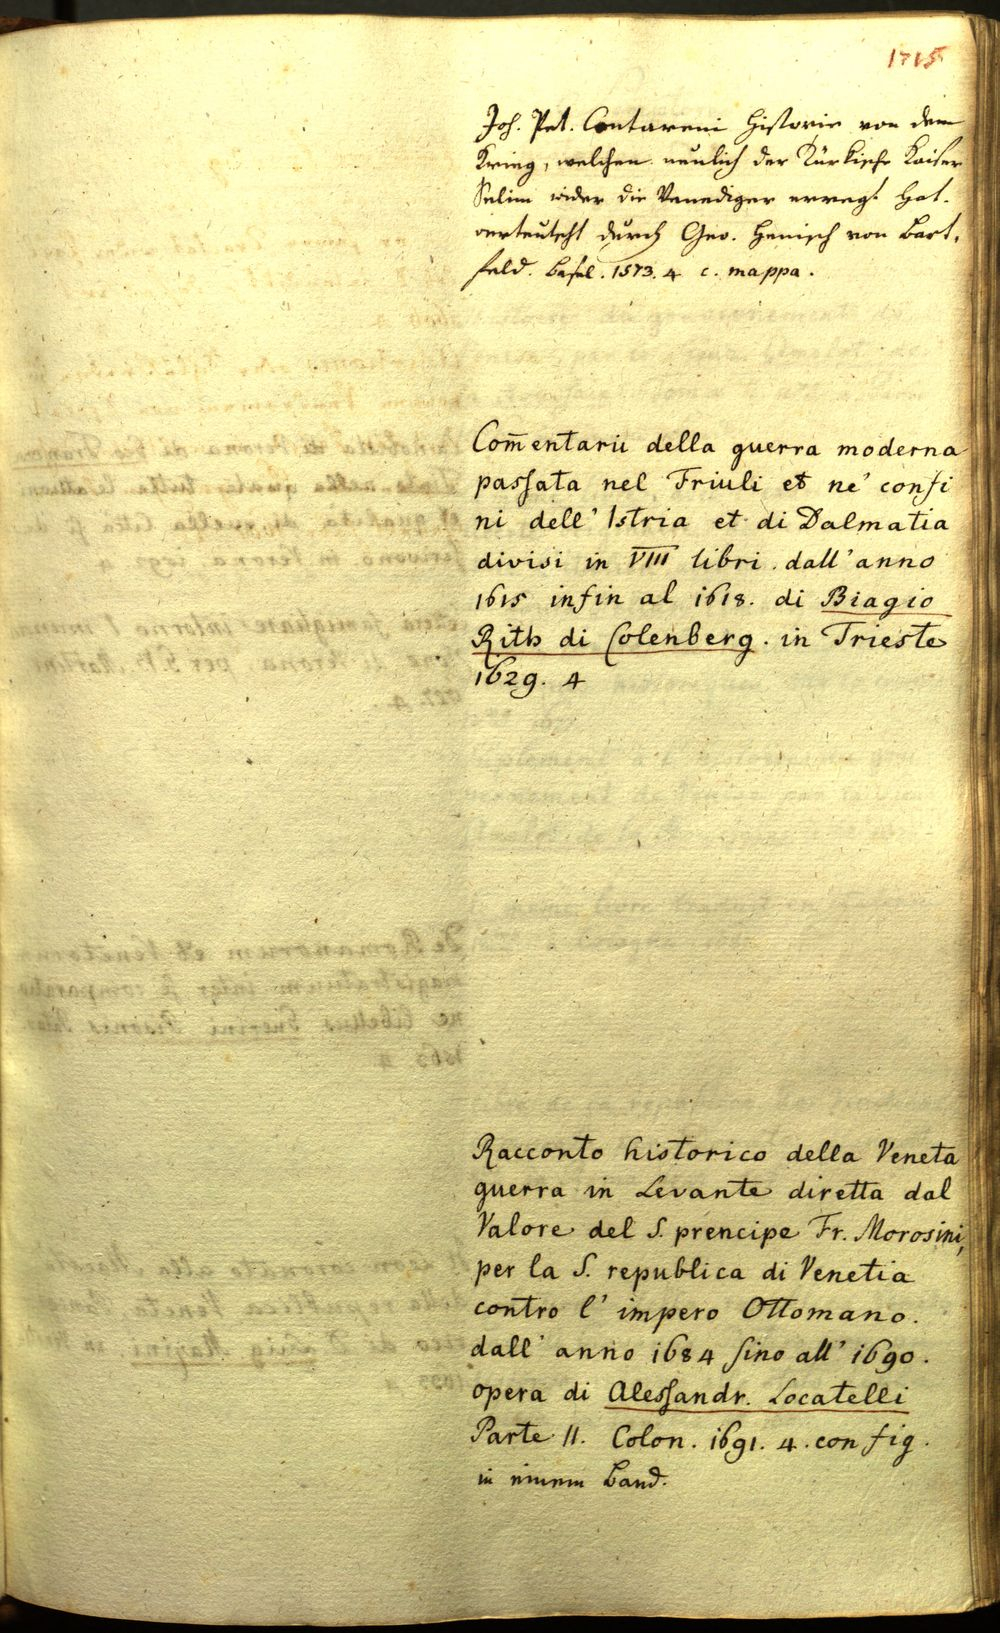 1715
Joh. Pet. Contareni Historie von dem
Krieg, welchen neulich der Türkische Kaiser
Selim wider die Venediger erregt hat.
verteutscht durch Geo. Henisch von Bart,
feld. Basel. 1573. 4 c. mappa.
Com̄entarii della guerra moderna
passata nel Friuli et ne' confi
ni dell' Istria et di Dalmatia
divisi in VIII libri. dall' anno
1615 infin al 1618. di Biagio
Rith di Colenberg. in Trieste
1629. 4
Racconto historico della Veneta
guerra in Levante diretta dal
Valore del S. prencipe Fr. Morosini,
per la S. republica di Venetia
contro l' impero Ottomano.
dall' anno 1684 sino all' 1690.
opera di Alessandr. Locatelli
Parte II. Colon. 1691. 4. con fig.
in einem Band.